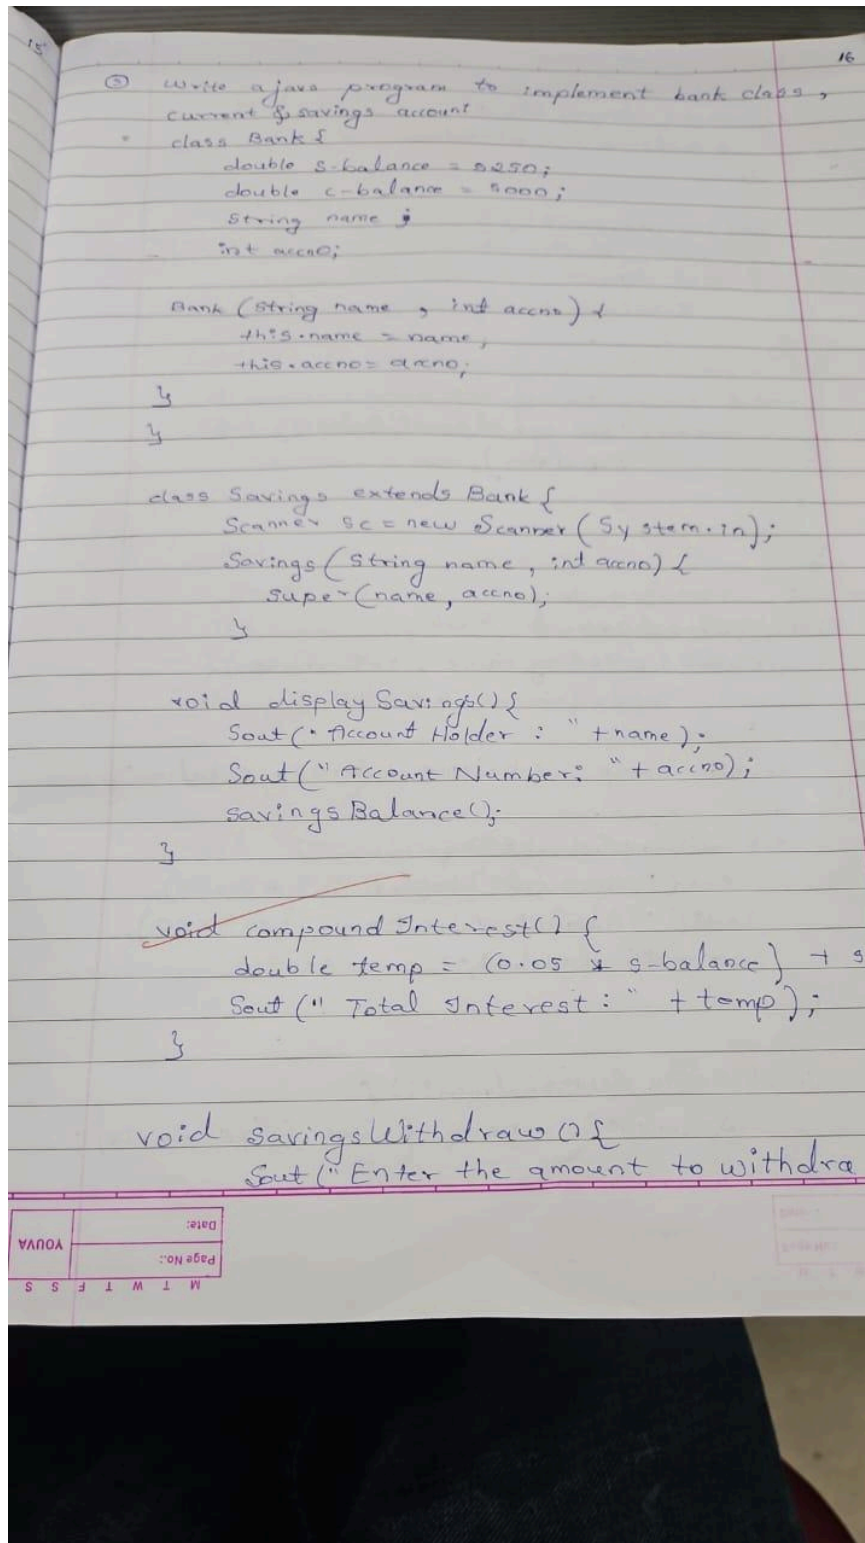 15
16
⑤ Write a java program to implement bank class,
current & savings account
class Bank {
double s-balance = 5250;
double c-balance = 5000;
String name ;
int accno;
Bank (String name , int accno) {
this.name = name,
this.accno = accno;
}
}
class Savings extends Bank {
Scanner sc = new Scanner (System.in);
Savings (String name, int accno) {
super(name, accno);
}
void displaySavings() {
Sout(" Account Holder : " + name);
Sout(" Account Number: " + accno);
savingsBalance();
}
void compound Interest() {
double temp = (0.05 * s-balance) + s
Sout (" Total Interest : " + temp);
}
void savingsWithdraw () {
Sout (" Enter the amount to withdra
YOUVA
Date:
Page No.:
M T W T F S S